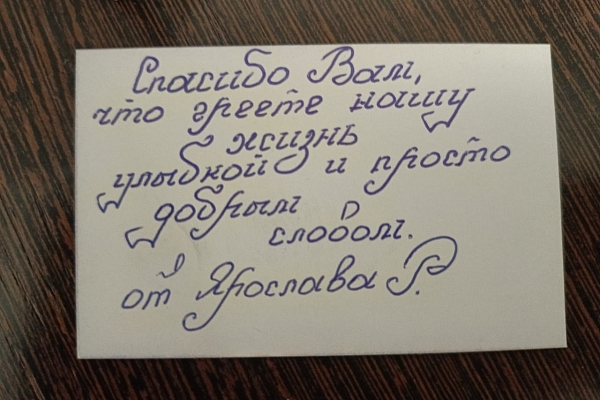 Спасибо Вам,
что греете нашу
жизнь
улыбкой и просто
добрым
словом.
от Ярослава Р.